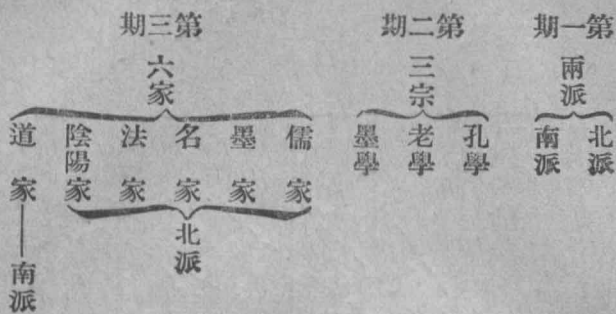 第一期
兩派
北派
南派
第二期
三宗
孔學
老學
墨學
第三期
六家
儒家
墨家
名家
法家
陰陽家
道家
北派
南派